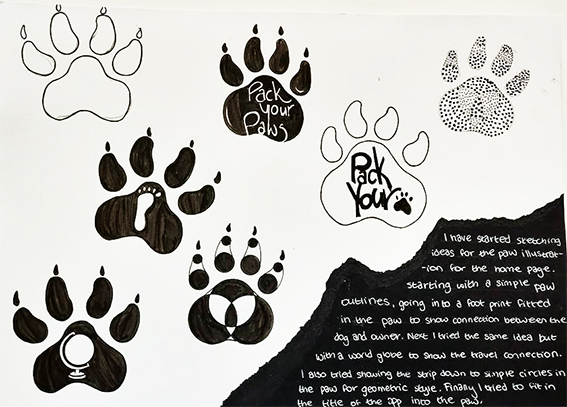 Pack
your
Paws
Pack
Your
I have started sketching
ideas for the paw illustrat-
-ion for the home page.
starting with a simple paw
outlines, going into a foot print fitted
in the paw to show connection between the
dog and owner. Next I tried the same idea but
with a world globe to show the travel connection.
I also tried showing the strip down to simple circles in
the paw for geometric style. Finally I tried to fit in
the title of the app into the paw.